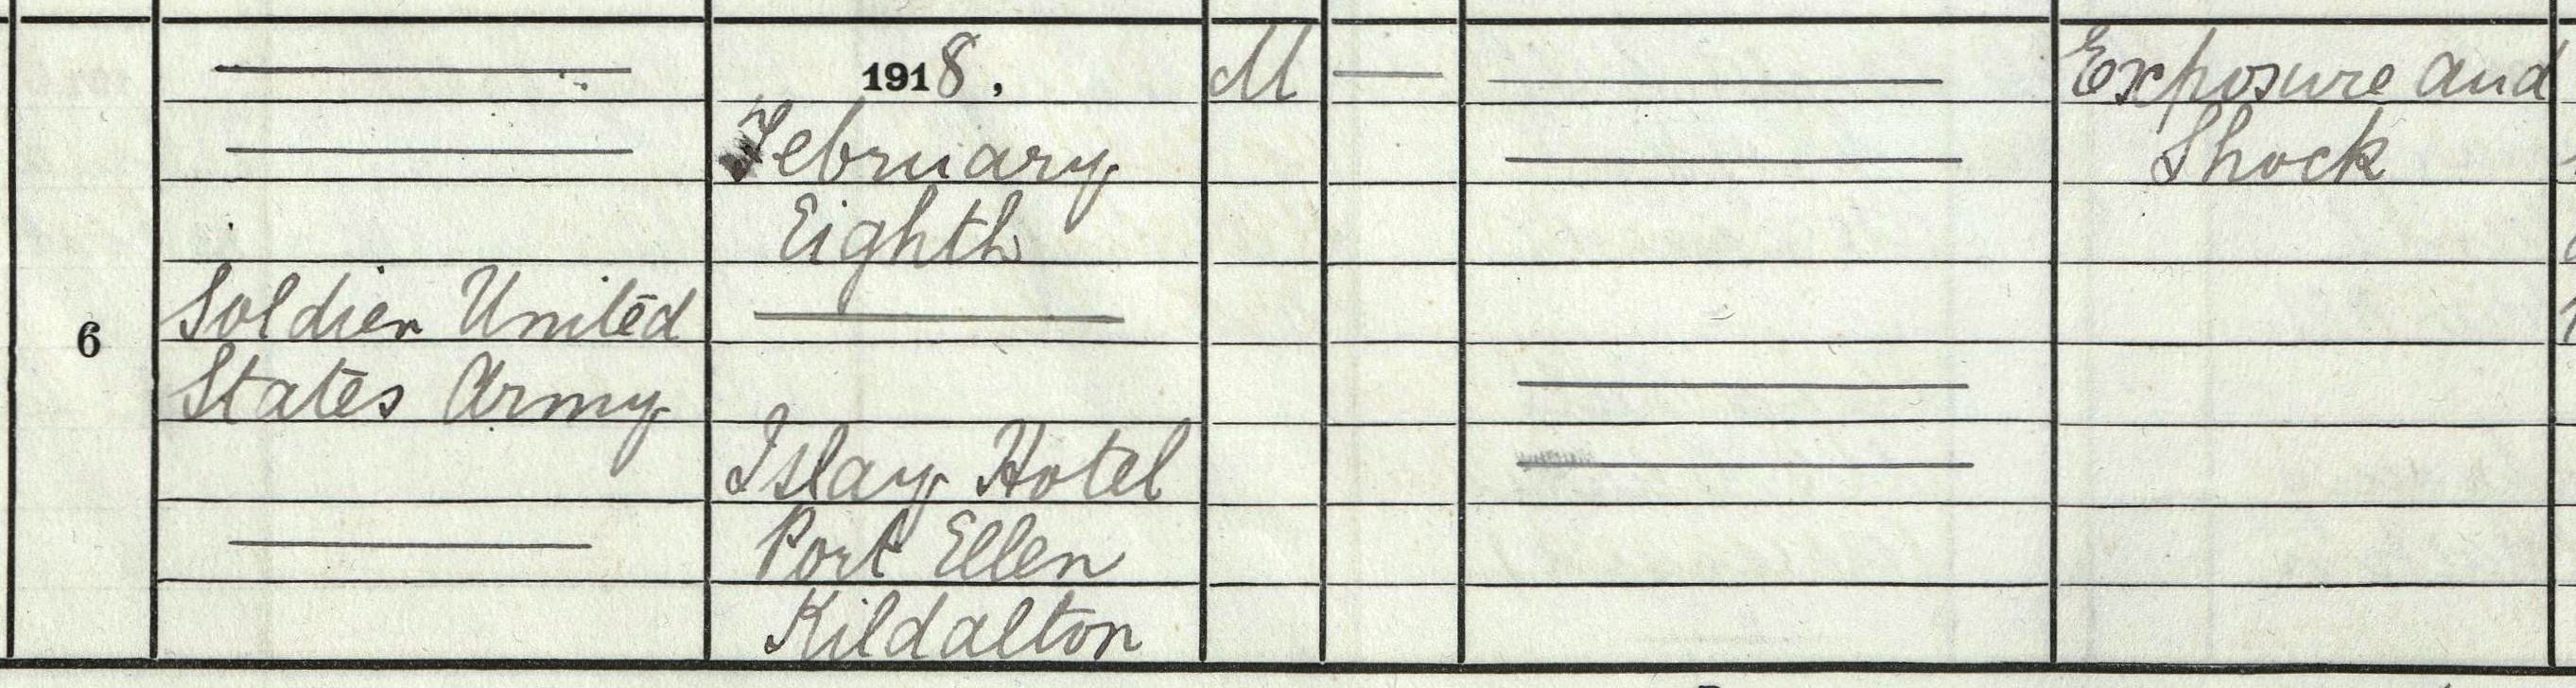 6
Soldier United
States Army
1918,
February
Eighth
Islay Hotel
Port Ellen
Kildalton
M
Exposure and
Shock